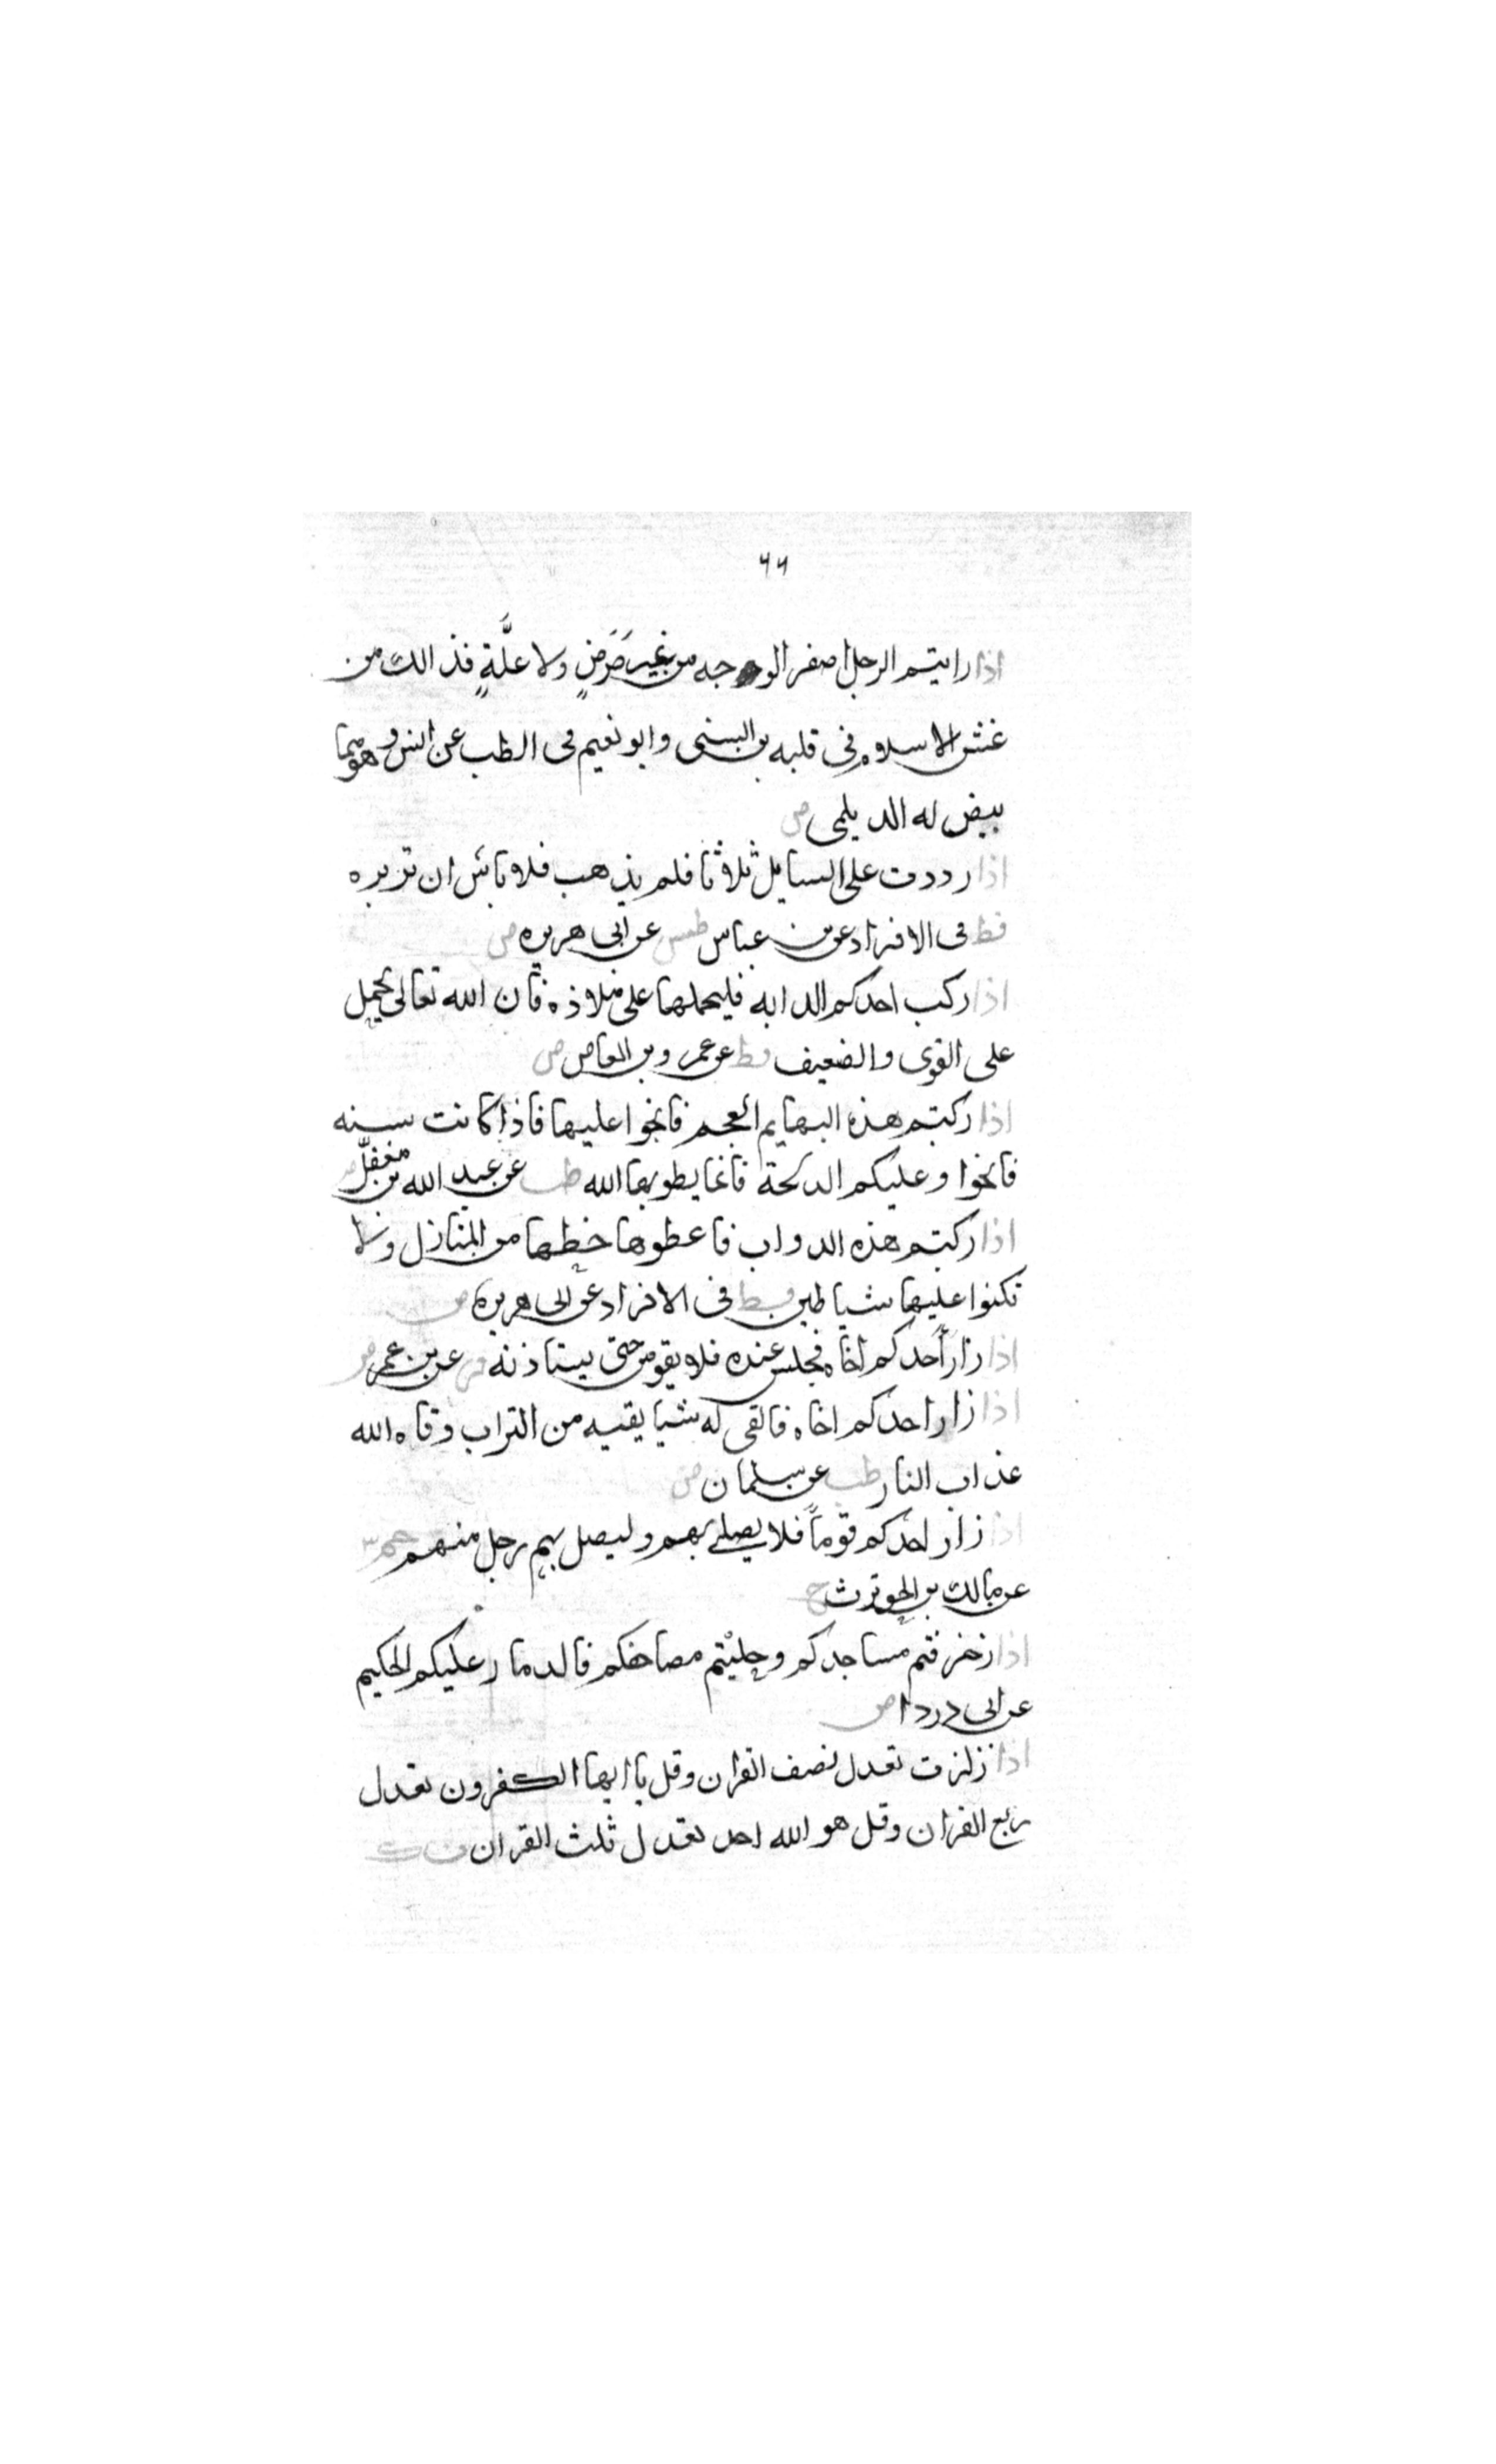 ٦٦
اذا رايتم الرجل اصفر الوجه من غير مَرَضٍ ولا علَّةٍ فذالك من
غش الاسلام فى قلبه بن السنى وابو نعيم فى الطب عن انس وهو مما
بيض له الديلمى ض
اذا رددت على السايل ثلاثا فلم يذهب فلا باس ان تزبره
قط فى الافراد عن بن عباس طس عن ابى هريره ض
اذا ركب احدكم الدابه فليحملها على ملاذه فان الله تعالى يحمل
على القوى والضعيف قط عن عمرو بن العاص ض
اذا ركبتم هذه البهايم العجم فانجوا عليها فاذا كانت سنه
فانجوا وعليكم الدلجة فانما يطويها الله طب عن عبد الله بن مغفل
اذا ركبتم هذه الدواب فاعطوها حظها من المنازل ولا
تكنوا عليها شياطين قط فى الافراد عن ابى هريرة ض
اذا زار أحدكم اخاه فجلس عنده فلا يقومن حتى يستاذنه فر عن بن عمر ض
اذا زار احدكم اخاه فالقى له شيا يقيه من التراب وقاه الله
عذاب النار طب عن سلمان ض
اذا زار احدكم قوماً فلا يصلى بهم وليصل بهم رجل منهم حم ٣
عن مالك بن الحويرث ح
اذا زخرفتم مساجدكم وحليْتم مصاحفكم فالدمار عليكم الحكيم
عن ابى دردا ض
اذا زلزت تعدل نصف القران وقل يا ايها الكفرون تعدل
ربع القران وقل هو الله احد تعدل ثلث القران ت ك